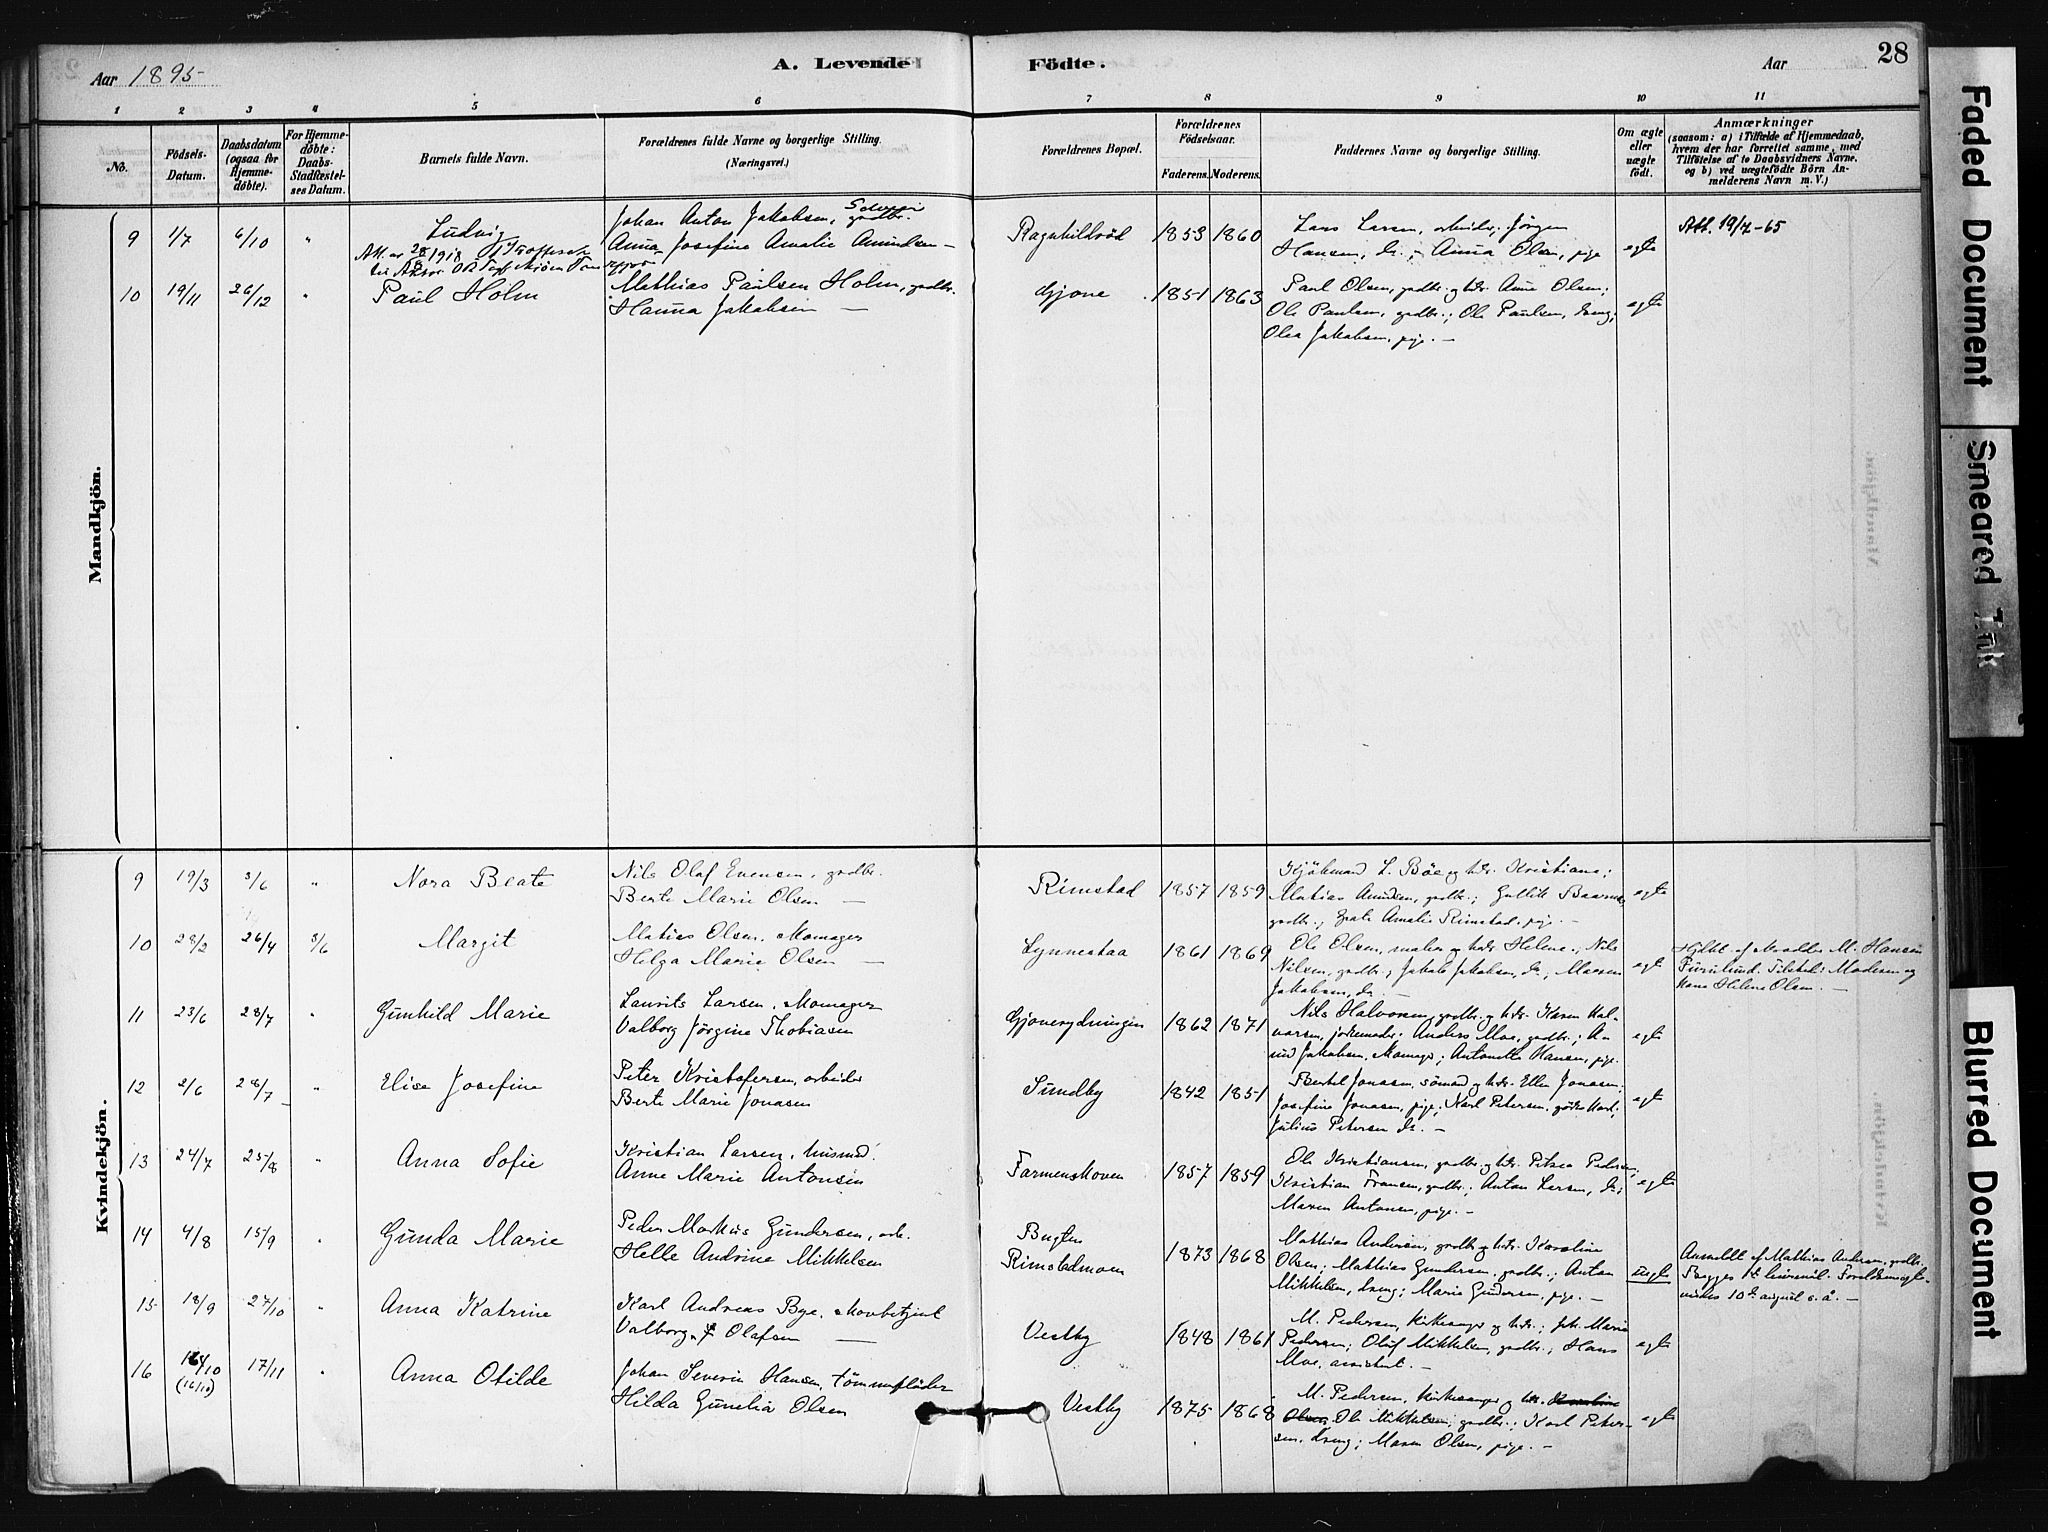 Aar 1895
A. Levende
Födte.
Aar
28
1 2 3 4 5 6 7 8 9 10 11
No.
Födsels-Datum.
Daabsdatum (ogsaa for Hjemmedöbte).
For Hjemmedöbte: Daabs-Stadfæstelses Datum.
Barnets fulde Navn.
Forældrenes fulde Navne og borgerlige Stilling.
(Næringsvei.)
Forældrenes Bopæl.
Forældrenes Födselsaar.
Faderens. Moderens.
Faddernes Navne og borgerlige Stilling.
Om ægte eller uægte födt.
Anmærkninger
(saasom: a) i Tilfælde af Hjemmedaab, hvem der har forrettet samme, med Tilföielse af to Daabsvidners Navne, og b) ved uægtefödte Börn Anmelderens Navn m. V.)
Mandkjön.
9 1/7 6/10 " Ludvig
Johan Anton Jakobsen, gbr.
Anna Josefine Amalie Amundsen
Ragnhildröd 1853 1860
Lars Larsen, arbeider; Jörgen
Hansen, do.; Anna Olsen, pige
egte
Att. 19/7-65
10 19/11 26/12 " Paul Holm
Mathias Paulsen Holm, gadbr.
Hanna Jakobsen —
Gjone 1851 1863
Paul Olsen, gadbr. og hdr. Anne Olsen;
Ole Paulsen, gadbr.; Ole Paulsen, dreng;
Olea Jakobsen, pige. —
egte
Kvindekjön.
9 19/3 3/6 " Nora Beate
Nils Olaf Evensen, gadbr.
Berte Marie Olsen —
Rimstad 1857 1859
Kjöbmand L. Böe og hdr. Kristiane;
Matias Amundsen, gadbr.; Gullik
gadbr.; Amalie Rimstad, pige. —
egte
10 28/2 26/4 3/6 Margit
Matias Olsen, skomager
Helga Marie Olsen —
Lynnestaa 1861 1869
Ole Olsen, maler og hdr. Helene; Nils
Nilsen, gadbr.; Jakob Jakobsen, do.; Maren
Jakobsen, do. —
egte
Hjdbt. af M. Hansen
Furulund. Tilsted: Moderen og
Helene Olsen. —
11 23/6 28/7 " Gunhild Marie
Laurits Larsen, skomager
Valborg Jörgine Thobiasen
Gjonerydningen 1862 1871
Nils Halvorsen, gadbr. og hdr. Karen Hal-
vorsen, jordemoder; Anders Moe, gadbr.; A-
Jakobsen, skomager; Antonette Hansen, pige.
egte
12 2/6 28/7 " Elise Josefine
Peter Kristofersen, arbeider
Berte Marie Jonasen
Sundby 1842 1851
Bertel Jonasen, sömand og hdr. Ellen Jonasen;
Josefine Jonasen, pige; Karl Petersen,
Julius Petersen do. —
egte
13 24/7 25/8 " Anna Sofie
Kristian Larsen, husmd.
Anne Marie Antonsen
Farmenskoven 1857 1859
Ole Kristiansen, gadbr. og hdr. Petrea Pedersen;
Kristian Fransen, gadbr.; Anton Larsen, do.;
Maren Antonsen, pige. —
egte
14 4/8 15/9 " Gunda Marie
Peder Markus Gundersen, arb.
Helle Andrine Mikkelsen
Bugten
Rimstadmoen 1873 1868
Mathias Andersen, gadbr. og hdr. Karoline
Olsen; Mathias Gundersen, gadbr.; Anton
Mikkelsen, dreng; Marie Gundersen, pige. —
uegte
Anmeldt af Mathias Andersen, gadbr.
Begges 1ste leiermål. Forældrene egte-
viedes 10de august s. å. —
15 18/9 27/10 " Anna Katrine
Karl Andreas Bye, skovbetjent
Valborg J. Olafsen —
Vestby 1848 1861
M. Pedersen, kirkesanger og hdr.; Joh. Marie
Pedersen; Oluf Mikkelsen, gadbr.; Hans
Moe, assistent. —
egte
16 (16/10) 17/11 " Anna Otilde
Johan Severin Hansen, tömmerflöder
Hilda Gunelia Olsen
Vestby 1875 1868
M. Pedersen, kirkesanger og hdr. Karoline
Olsen. Ole Mikkelsen, gadbr.; Karl Peter-
sen, dreng; Maren Olsen, pige. —
egte
Faded Document
Smeared Ink
Blurred Document